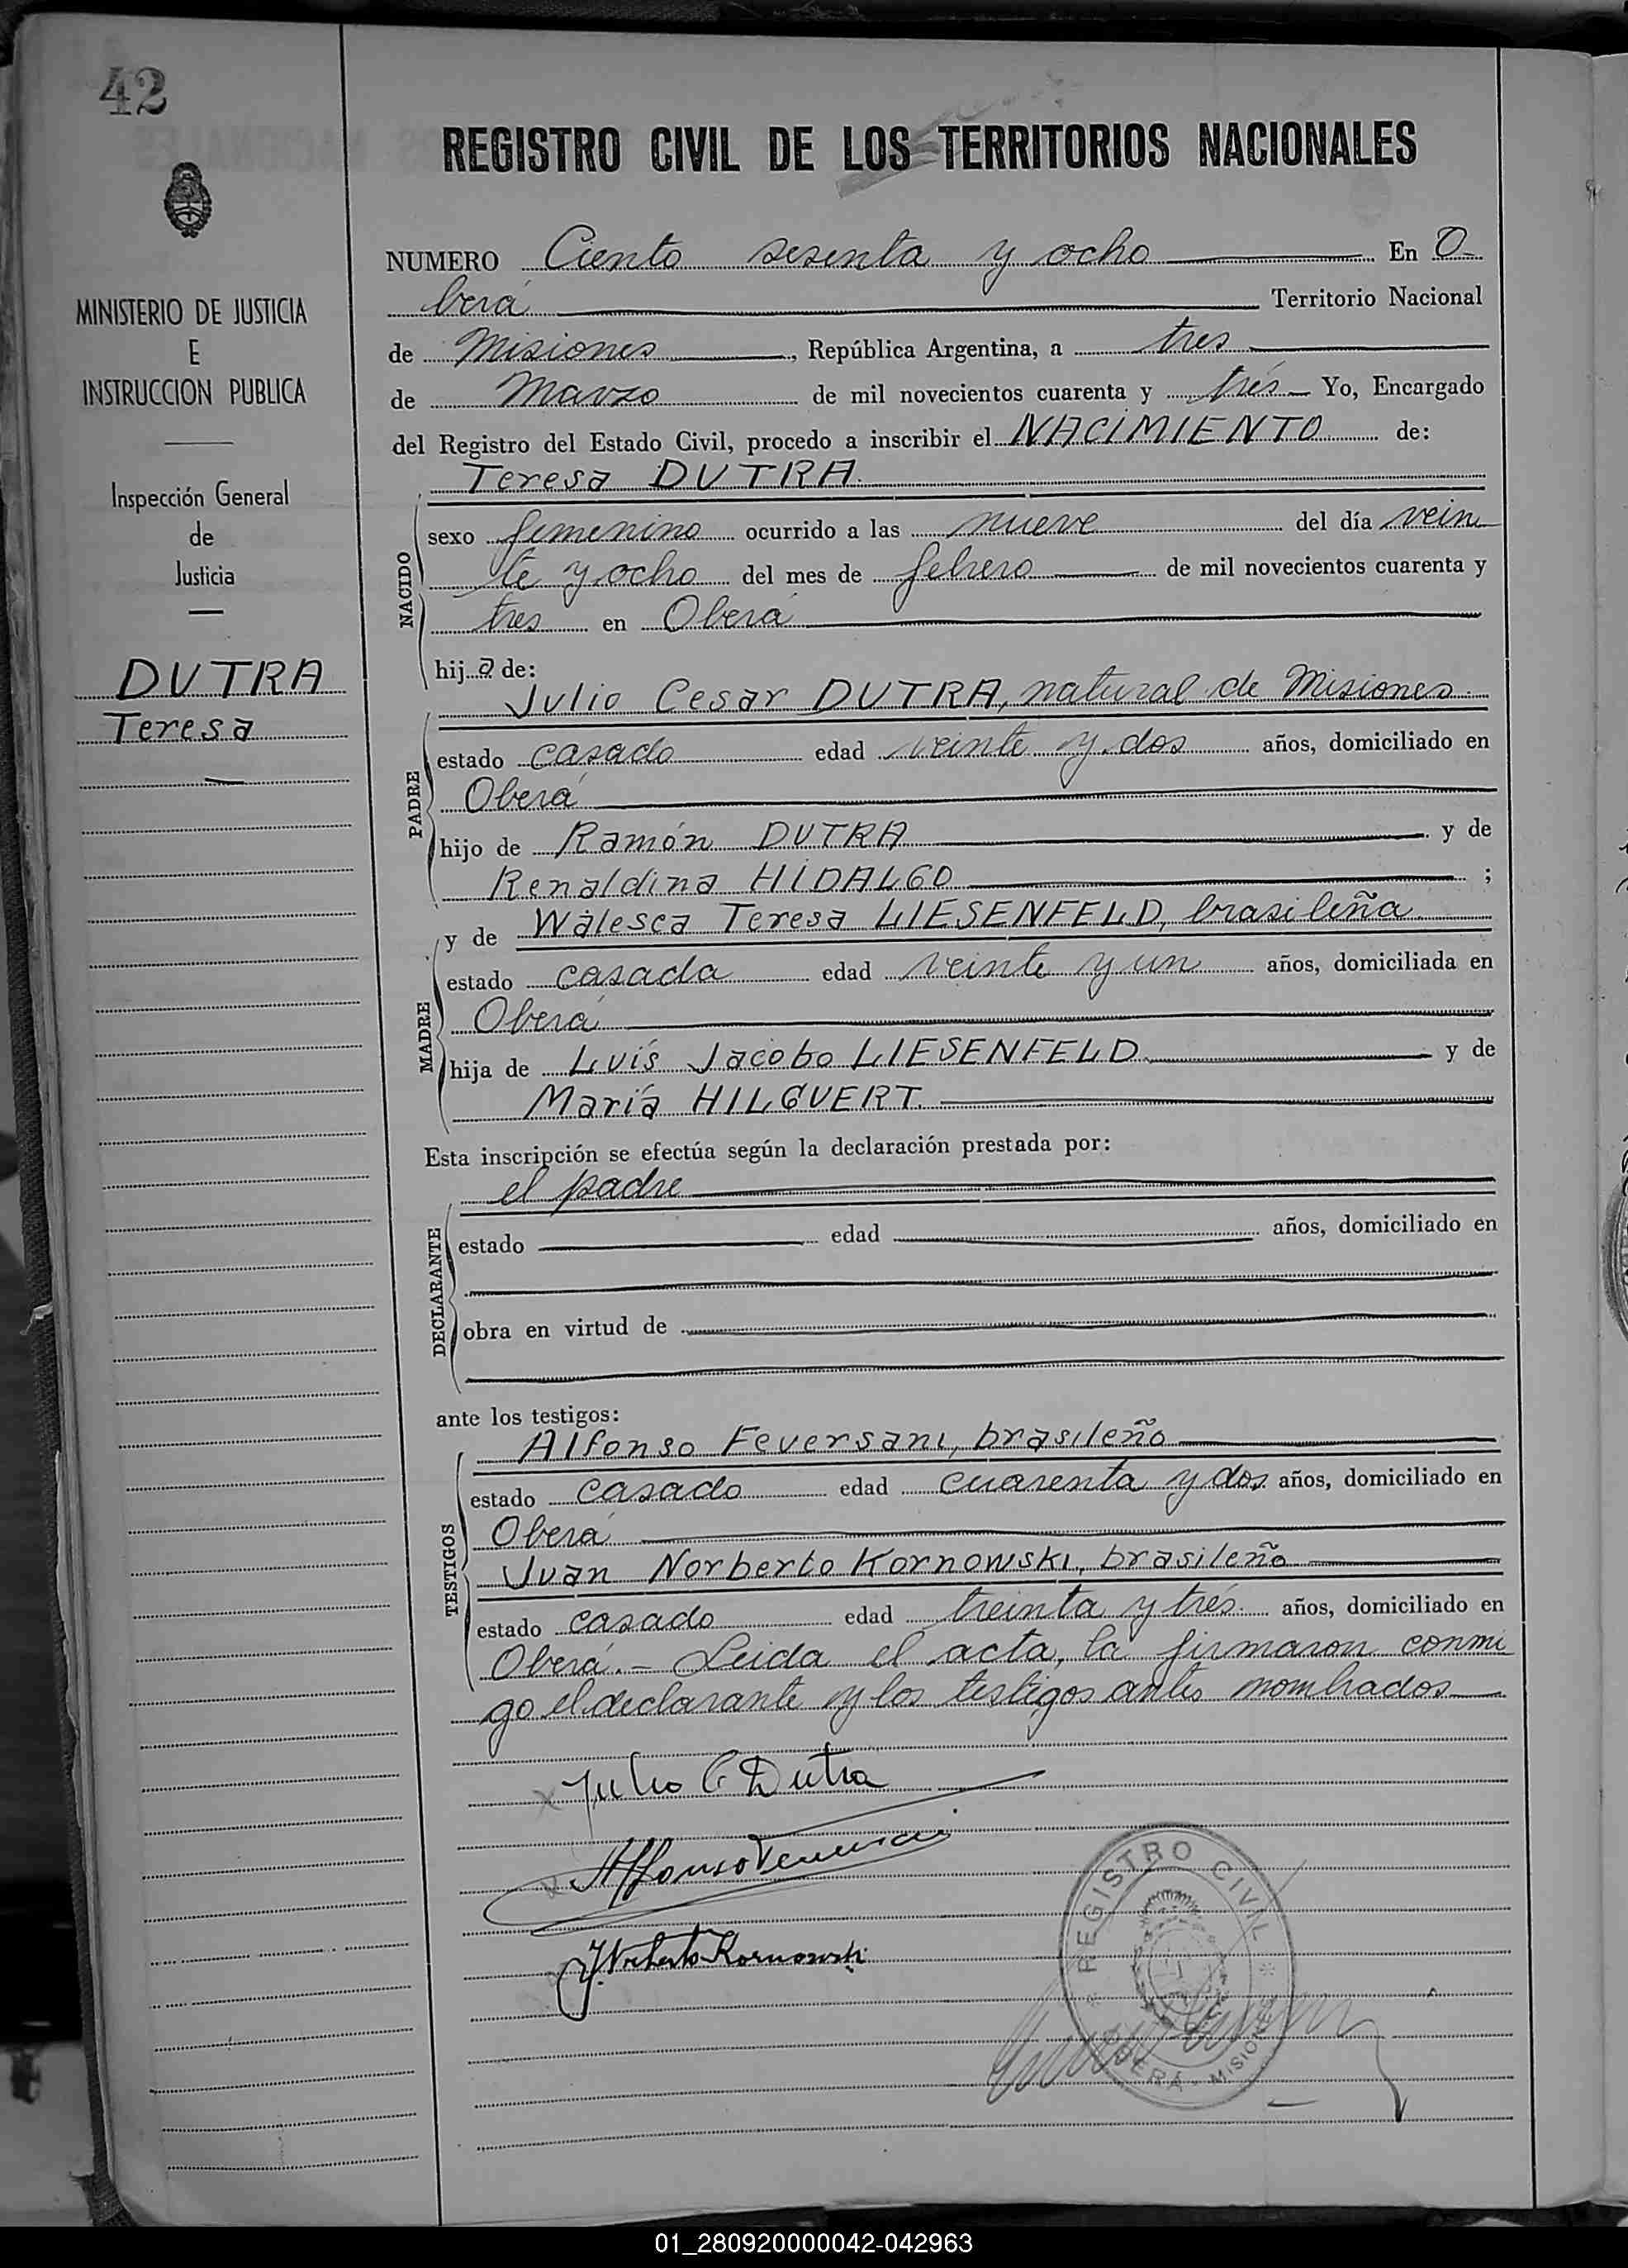 42
MINISTERIO DE JUSTICIA
E
INSTRUCCION PUBLICA
Inspección General
de
Justicia
DUTRA
Teresa
REGISTRO CIVIL DE LOS TERRITORIOS NACIONALES
NUMERO Ciento sesenta y ocho En O-
berá Territorio Nacional
de Misiones, República Argentina, a tres
de Marzo de mil novecientos cuarenta y trés Yo, Encargado
del Registro del Estado Civil, procedo a inscribir el NACIMIENTO de:
Teresa DUTRA.
NACIDO
sexo femenino ocurrido a las nueve del día vein
te y ocho del mes de febrero de mil novecientos cuarenta y
tres en Oberá
hija de:
Julio Cesar DUTRA, natural de Misiones
PADRE
estado casado edad veinte y dos años, domiciliado en
Oberá
hijo de Ramón DUTRA y de
Renaldina HIDALGO ;
y de Wálesca Teresa LIESENFELD, brasileña
MADRE
estado casada edad veinte y un años, domiciliada en
Oberá
hija de Luís Jacobo LIESENFELD y de
María HILGUERT.
Esta inscripción se efectúa según la declaración prestada por:
el padre
DECLARANTE
estado edad años, domiciliado en
obra en virtud de
ante los testigos:
Alfonso Feversani, brasileño
TESTIGOS
estado casado edad cuarenta y dos años, domiciliado en
Oberá
Juan Norberto Kornowski, brasileño
estado casado edad treinta y trés años, domiciliado en
Oberá.- Leida el acta, la firmaron conmi
go el declarante y los testigos antes nombrados
Julio C Dutra
Affonso
J. Norberto Kornowski
REGISTRO CIVIL
OBERÁ - MISIONES
01_280920000042-042963